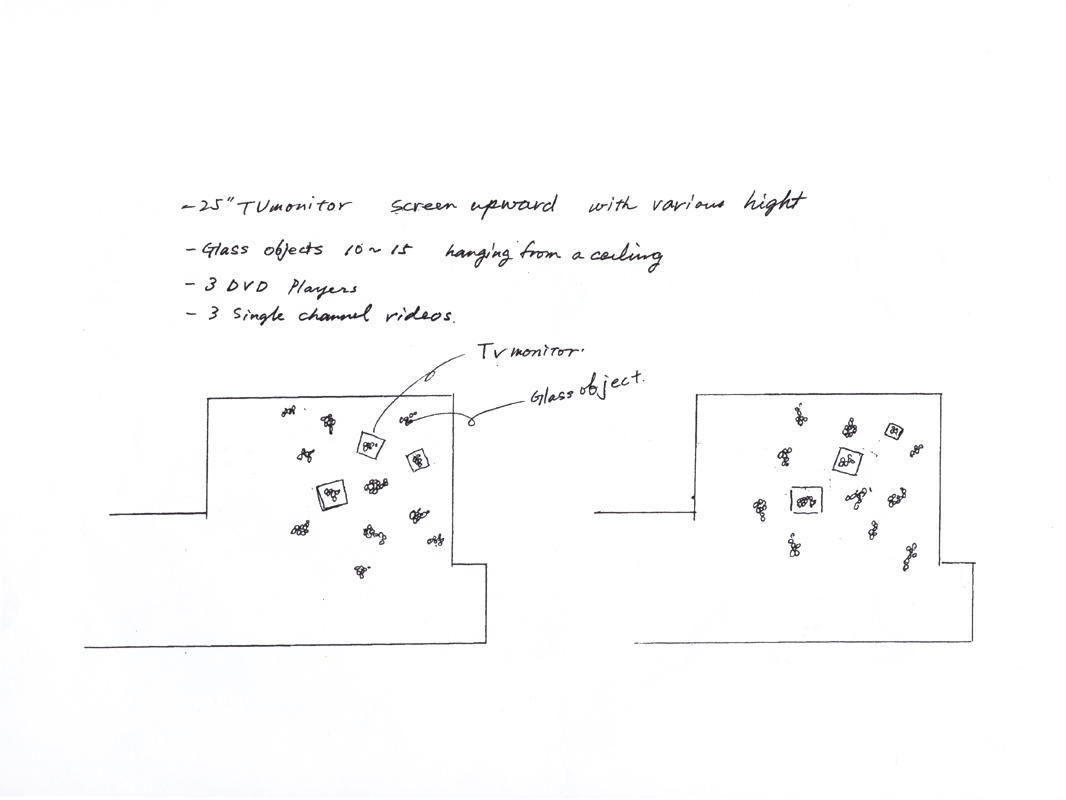 - 25" TV monitor screen upward with various hight
- Glass objects 10 ~ 15 hanging from a ceiling
- 3 DVD Players
- 3 Single channel videos.
TV monitor.
Glass object.